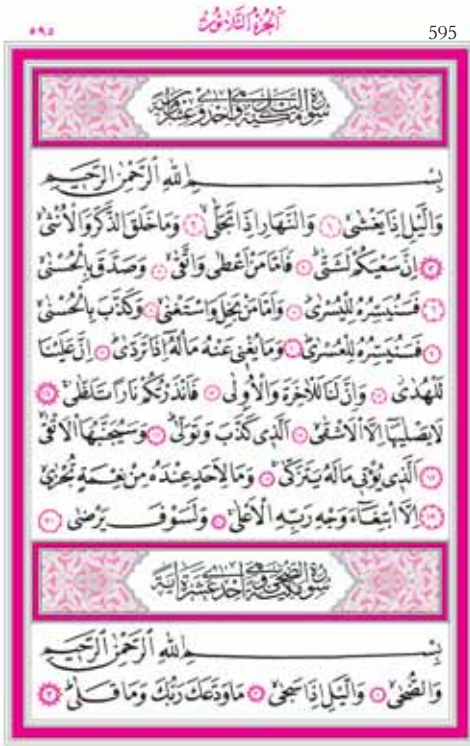 الجزء الثلاثون
٥٩٥ 595
سورة الليل مكية وهي احدى وعشرون اية
بِسْمِ اللهِ الرَّحْمٰنِ الرَّحِيمِ
وَالَّيْلِ اِذَا يَغْشٰىۙ ﴿١﴾ وَالنَّهَارِ اِذَا تَجَلّٰىۙ ﴿٢﴾ وَمَا خَلَقَ الذَّكَرَ وَالْاُنْثٰىۙ
﴿٣﴾ اِنَّ سَعْيَكُمْ لَشَتّٰىۜ ﴿٤﴾ فَاَمَّا مَنْ اَعْطٰى وَاتَّقٰىۙ ﴿٥﴾ وَصَدَّقَ بِالْحُسْنٰىۙ
﴿٦﴾ فَسَنُيَسِّرُهُ لِلْيُسْرٰىۜ ﴿٧﴾ وَاَمَّا مَنْ بَخِلَ وَاسْتَغْنٰىۙ ﴿٨﴾ وَكَذَّبَ بِالْحُسْنٰىۙ
﴿٩﴾ فَسَنُيَسِّرُهُ لِلْعُسْرٰىۜ ﴿١٠﴾ وَمَا يُغْنٖي عَنْهُ مَالُهُٓ اِذَا تَرَدّٰىۜ ﴿١١﴾ اِنَّ عَلَيْنَا
لَلْهُدٰىۘ ﴿١٢﴾ وَاِنَّ لَنَا لَلْاٰخِرَةَ وَالْاُو۫لٰى ﴿١٣﴾ فَاَنْذَرْتُكُمْ نَارًا تَلَظّٰىۚ ﴿١٤﴾
لَا يَصْلٰيهَٓا اِلَّا الْاَشْقٰىۙ ﴿١٥﴾ اَلَّذٖي كَذَّبَ وَتَوَلّٰىۜ ﴿١٦﴾ وَسَيُجَنَّبُهَا الْاَتْقٰىۙ
﴿١٧﴾ اَلَّذٖي يُؤْتٖي مَالَهُ يَتَزَكّٰىۚ ﴿١٨﴾ وَمَا لِاَحَدٍ عِنْدَهُ مِنْ نِعْمَةٍ تُجْزٰىۙ
﴿١٩﴾ اِلَّا ابْتِغَٓاءَ وَجْهِ رَبِّهِ الْاَعْلٰىۚ ﴿٢٠﴾ وَلَسَوْفَ يَرْضٰى ﴿٢١﴾
سورة الضحى مكية وهي احدى عشرة اية
بِسْمِ اللهِ الرَّحْمٰنِ الرَّحِيمِ
وَالضُّحٰىۙ ﴿١﴾ وَالَّيْلِ اِذَا سَجٰىۙ ﴿٢﴾ مَا وَدَّعَكَ رَبُّكَ وَمَا قَلٰىۜ ﴿٣﴾